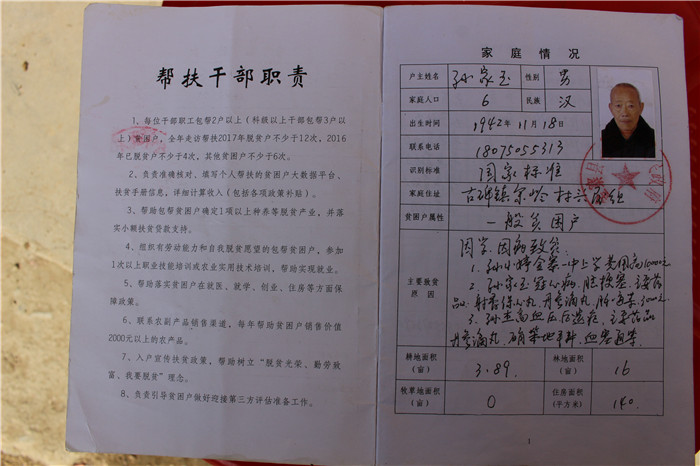 帮扶干部职责
1、每位干部职工包帮2户以上（科级以上干部包帮3户以
上）贫困户，全年走访帮扶2017年脱贫户不少于12次，2016
年已脱贫户不少于4次，其他贫困户不少于6次。
2、负责准确核对、填写个人帮扶的贫困户大数据平台、
扶贫手册信息，详细计算收入（包括各项政策补贴）。
3、帮助包帮贫困户确定1项以上种养等脱贫产业，并落
实小额扶贫贷款支持。
4、组织有劳动能力和自我脱贫愿望的包帮贫困户，参加
1次以上职业技能培训或农业实用技术培训，帮助实现就业。
5、帮助落实贫困户在就医、就学、创业、住房等方面保
障政策。
6、联系农副产品销售渠道，每年帮助贫困户销售价值
2000元以上的农产品。
7、入户宣传扶贫政策，帮助树立“脱贫光荣、勤劳致
富、我要脱贫”理念。
8、负责引导贫困户做好迎接第三方评估准备工作。
家庭情况
户主姓名 孙家玉 性别 男
家庭人口 6 民族 汉
出生时间 1942年11月18日
联系电话 18075055313
识别标准 国家标准
家庭住址 古碑镇 村 组
贫困户属性 一般贫困户
主要脱贫
原因
因学.因病致贫.
1. 孙小婷金寨一中上学费用
2. 孙家玉冠心病,脑梗塞.主要药
品. 丹参滴丸
3. 孙 高血压后遗症. 主要药品
丹参滴丸.
耕地面积
（亩） 3.89. 林地面积
（亩） 16
牧草地面积
（亩） 0 住房面积
（平方米） 140.
1